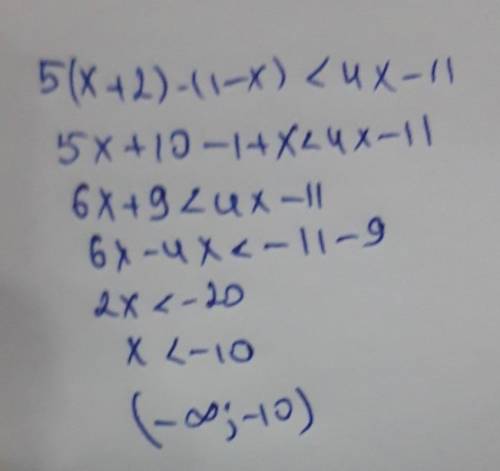 5(x+2)-(1-x) < 4x-11
5x+10-1+x<4x-11
6x+9<4x-11
6x-4x<-11-9
2x<-20
x<-10
(-∞;-10)